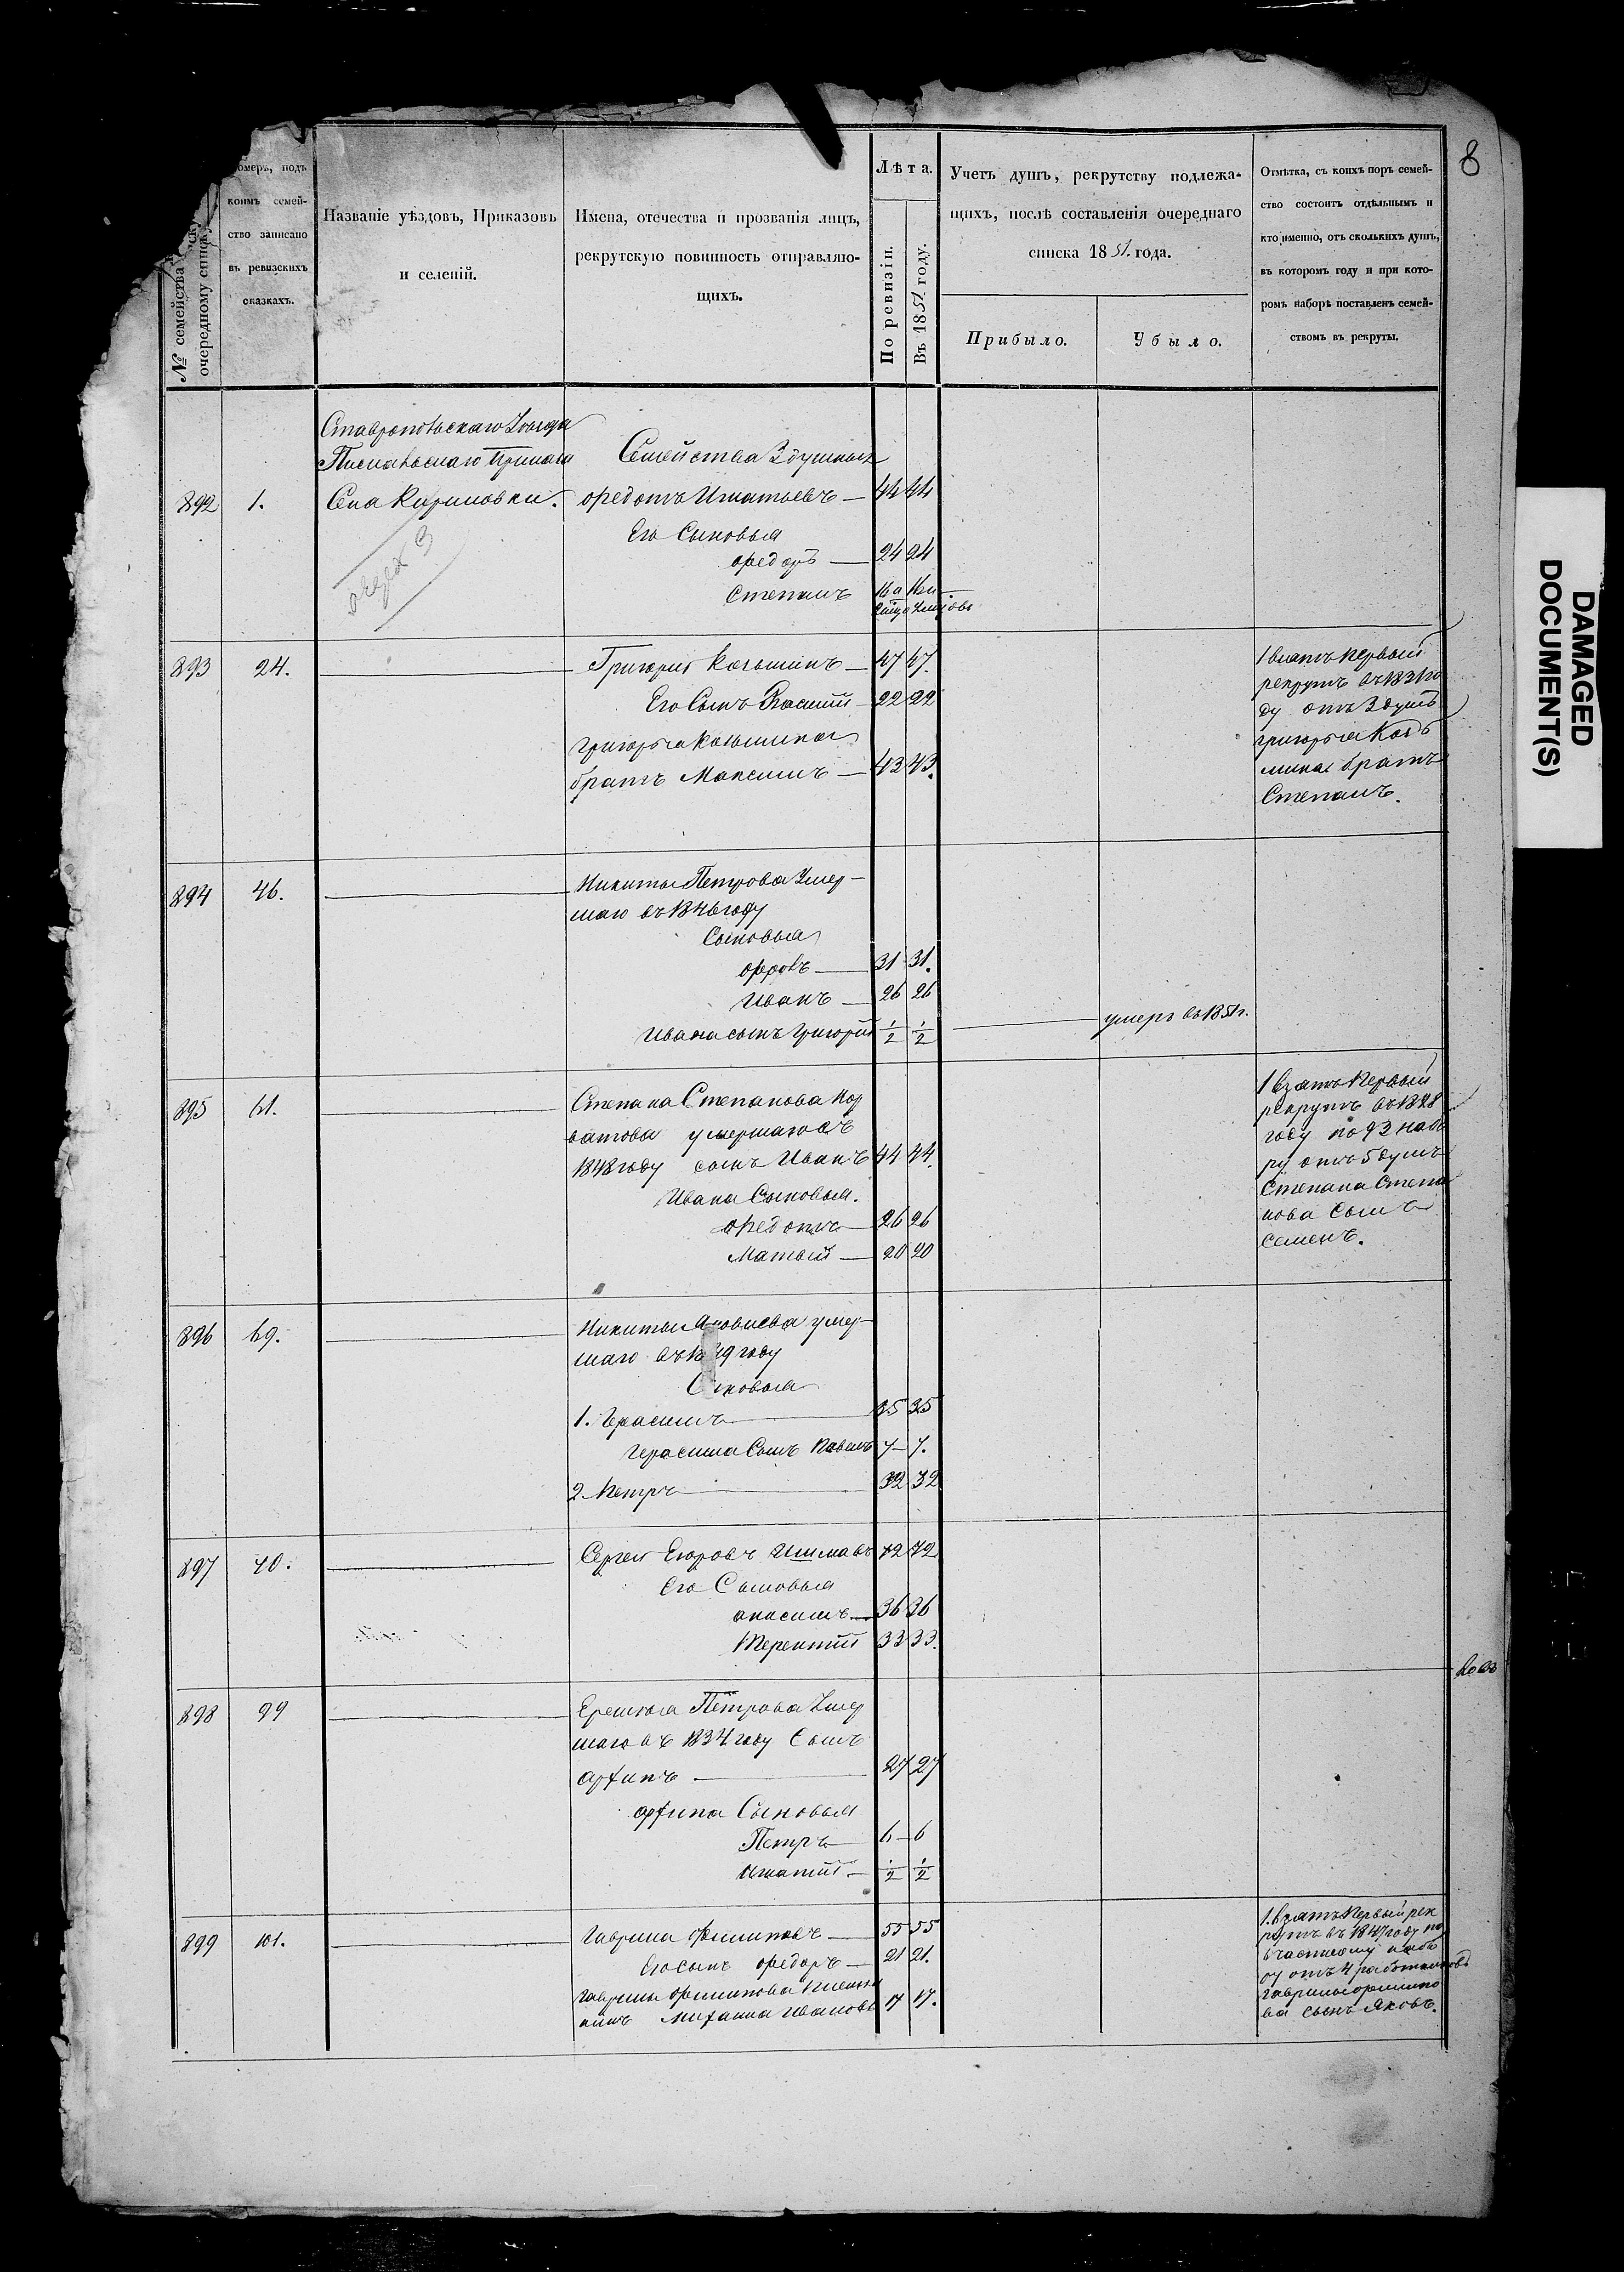 8
№ семейства
очередному списку
номеръ, подъ
коимъ семей-
ство записано
въ ревизскихъ
сказкахъ.
Названіе уѣздовъ, Приказовъ
и селеній.
Имена, отечества и прозванія лицъ,
рекрутскую повинность отправляю-
щихъ.
Лѣта.
По ревизіи.
Въ 1851 году.
Учетъ душъ, рекрутству подлежа-
щихъ, послѣ составленія очереднаго
списка 1851. года.
Прибыло.
Убыло.
Отмѣтка, съ коихъ поръ семей-
ство состоитъ отдѣльнымъ и
кто именно, отъ сколькихъ душъ,
въ которомъ году и при кото-
ромъ наборѣ поставленъ семей-
ствомъ въ рекруты.
Ставропольскаго Уезда
Приказа
Семейства 3 душныя
892 1. Села Федотъ Игнатьевъ 44 44
Его Сыновья
Федоръ 24 24
Степанъ
893 24. Григорій Козьминъ 47 47.
Его Сынъ 22 22
Григорья Козьмина
братъ Максимъ 43 43.
1 взятъ первый
рекрутъ въ 1831 го
ду отъ 3 душъ
Григорья Козь
мина братъ
Степанъ.
894 46. Никиты Петрова Умер-
шаго въ 1846 году
Сыновья
Фролъ 31 31.
Иванъ 26 26
Ивана сынъ Григорій 1/2 1/2 умеръ въ 1851 г.
895 61. Степана Степанова
умершаго въ
1848 году сынъ Иванъ 44 44.
Ивана Сыновья.
Федотъ 26 26
Матвей 20 20
1 взятъ первый
рекрутъ въ 1828
году по 92 набо
ру отъ 5 душъ
Степана Степа
нова сынъ
Семенъ.
896 69. Никиты Яковлева умер-
шаго въ году
Сыновья
1. Герасимъ 35 35
Герасима Сынъ Павелъ 7 7.
2 Петръ 32 32
897 70. Сергей Егоровъ 72 72
Его Сыновья
Анисимъ 36 36
Терентій 33 33.
898 99 Ермолая Петрова Умер
шаго въ 1834 году Сынъ
Архипъ 27 27
Архипа Сыновья
Петръ 6 6
Игнатій 1/2 1/2
899 101. Гаврила Филиповъ 55 55
Его сынъ Федоръ 21 21.
Гаврилы Филипова племян
никъ Михаила Ивановъ 17 17.
1. взятъ первый рек
рутъ въ 1847 году по
частному набо
ру отъ 4 работниковъ
Гаврилы Филипо
ва сынъ Яковъ.
DAMAGED
DOCUMENT(S)